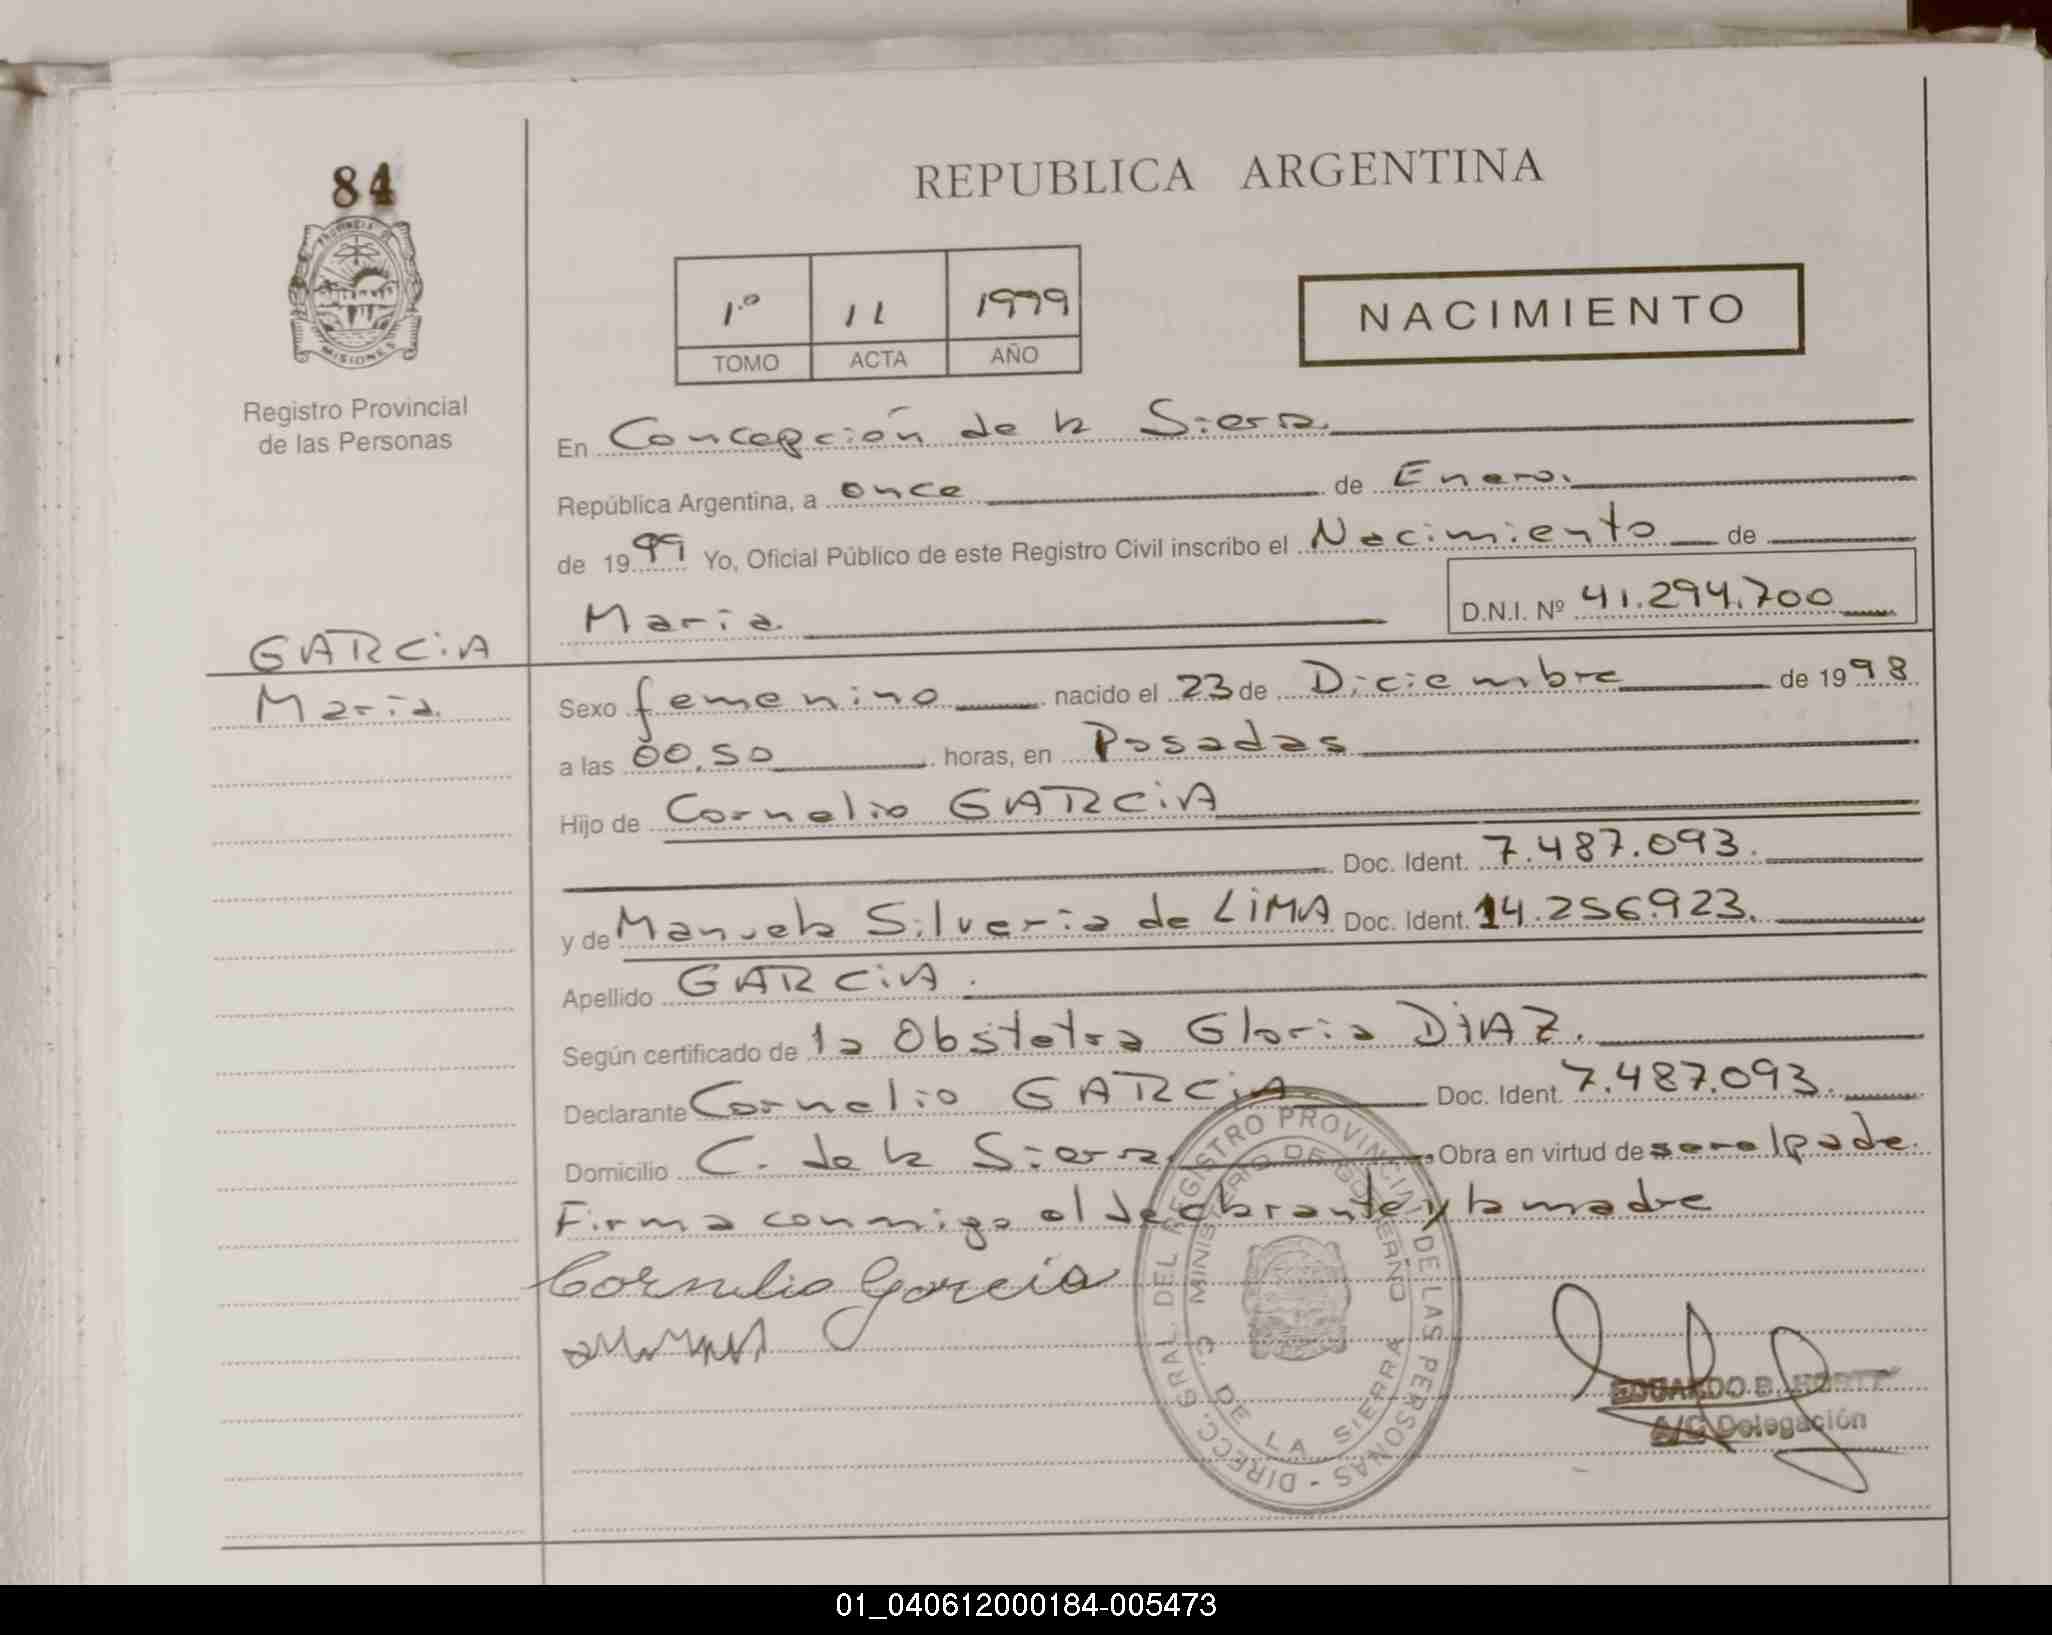 84
REPUBLICA ARGENTINA
PROVINCIA DE
MISIONES
Registro Provincial
de las Personas
1º 11 1999
TOMO ACTA AÑO
NACIMIENTO
En Concepción de la Sierra
República Argentina, a once de Enero.
de 1999 Yo, Oficial Público de este Registro Civil inscribo el Nacimiento de
Maria D.N.I. Nº 41.294.700
GARCiA
Maria
Sexo femenino nacido el 23 de Diciembre de 1998
a las 00.50 horas, en Posadas
Hijo de Cornelio GARCiA
Doc. Ident. 7.487.093.
y de Manuela Silveria de LiMA Doc. Ident. 14.256.923.
Apellido GARCiA.
Según certificado de la Obstetra Gloria DiAZ.
Declarante Cornelio GARCiA Doc. Ident. 7.487.093.
Domicilio C. de la Sierra Obra en virtud de ser el padre.
Firma conmigo el declarante y la madre
Cornelio Garcia
DIRECC. GRAL. DEL REGISTRO PROVINCIAL DE LAS PERSONAS -
MINISTERIO DE GOBIERNO
C. DE LA SIERRA
EDUARDO B.
A/C Delegación
01_040612000184-005473